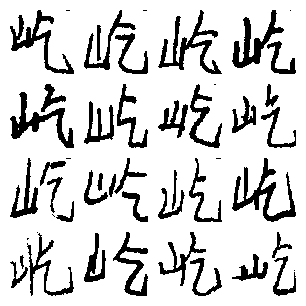 屹屹屹屹
屹屹屹屹
屹屹屹屹
屹屹屹屹